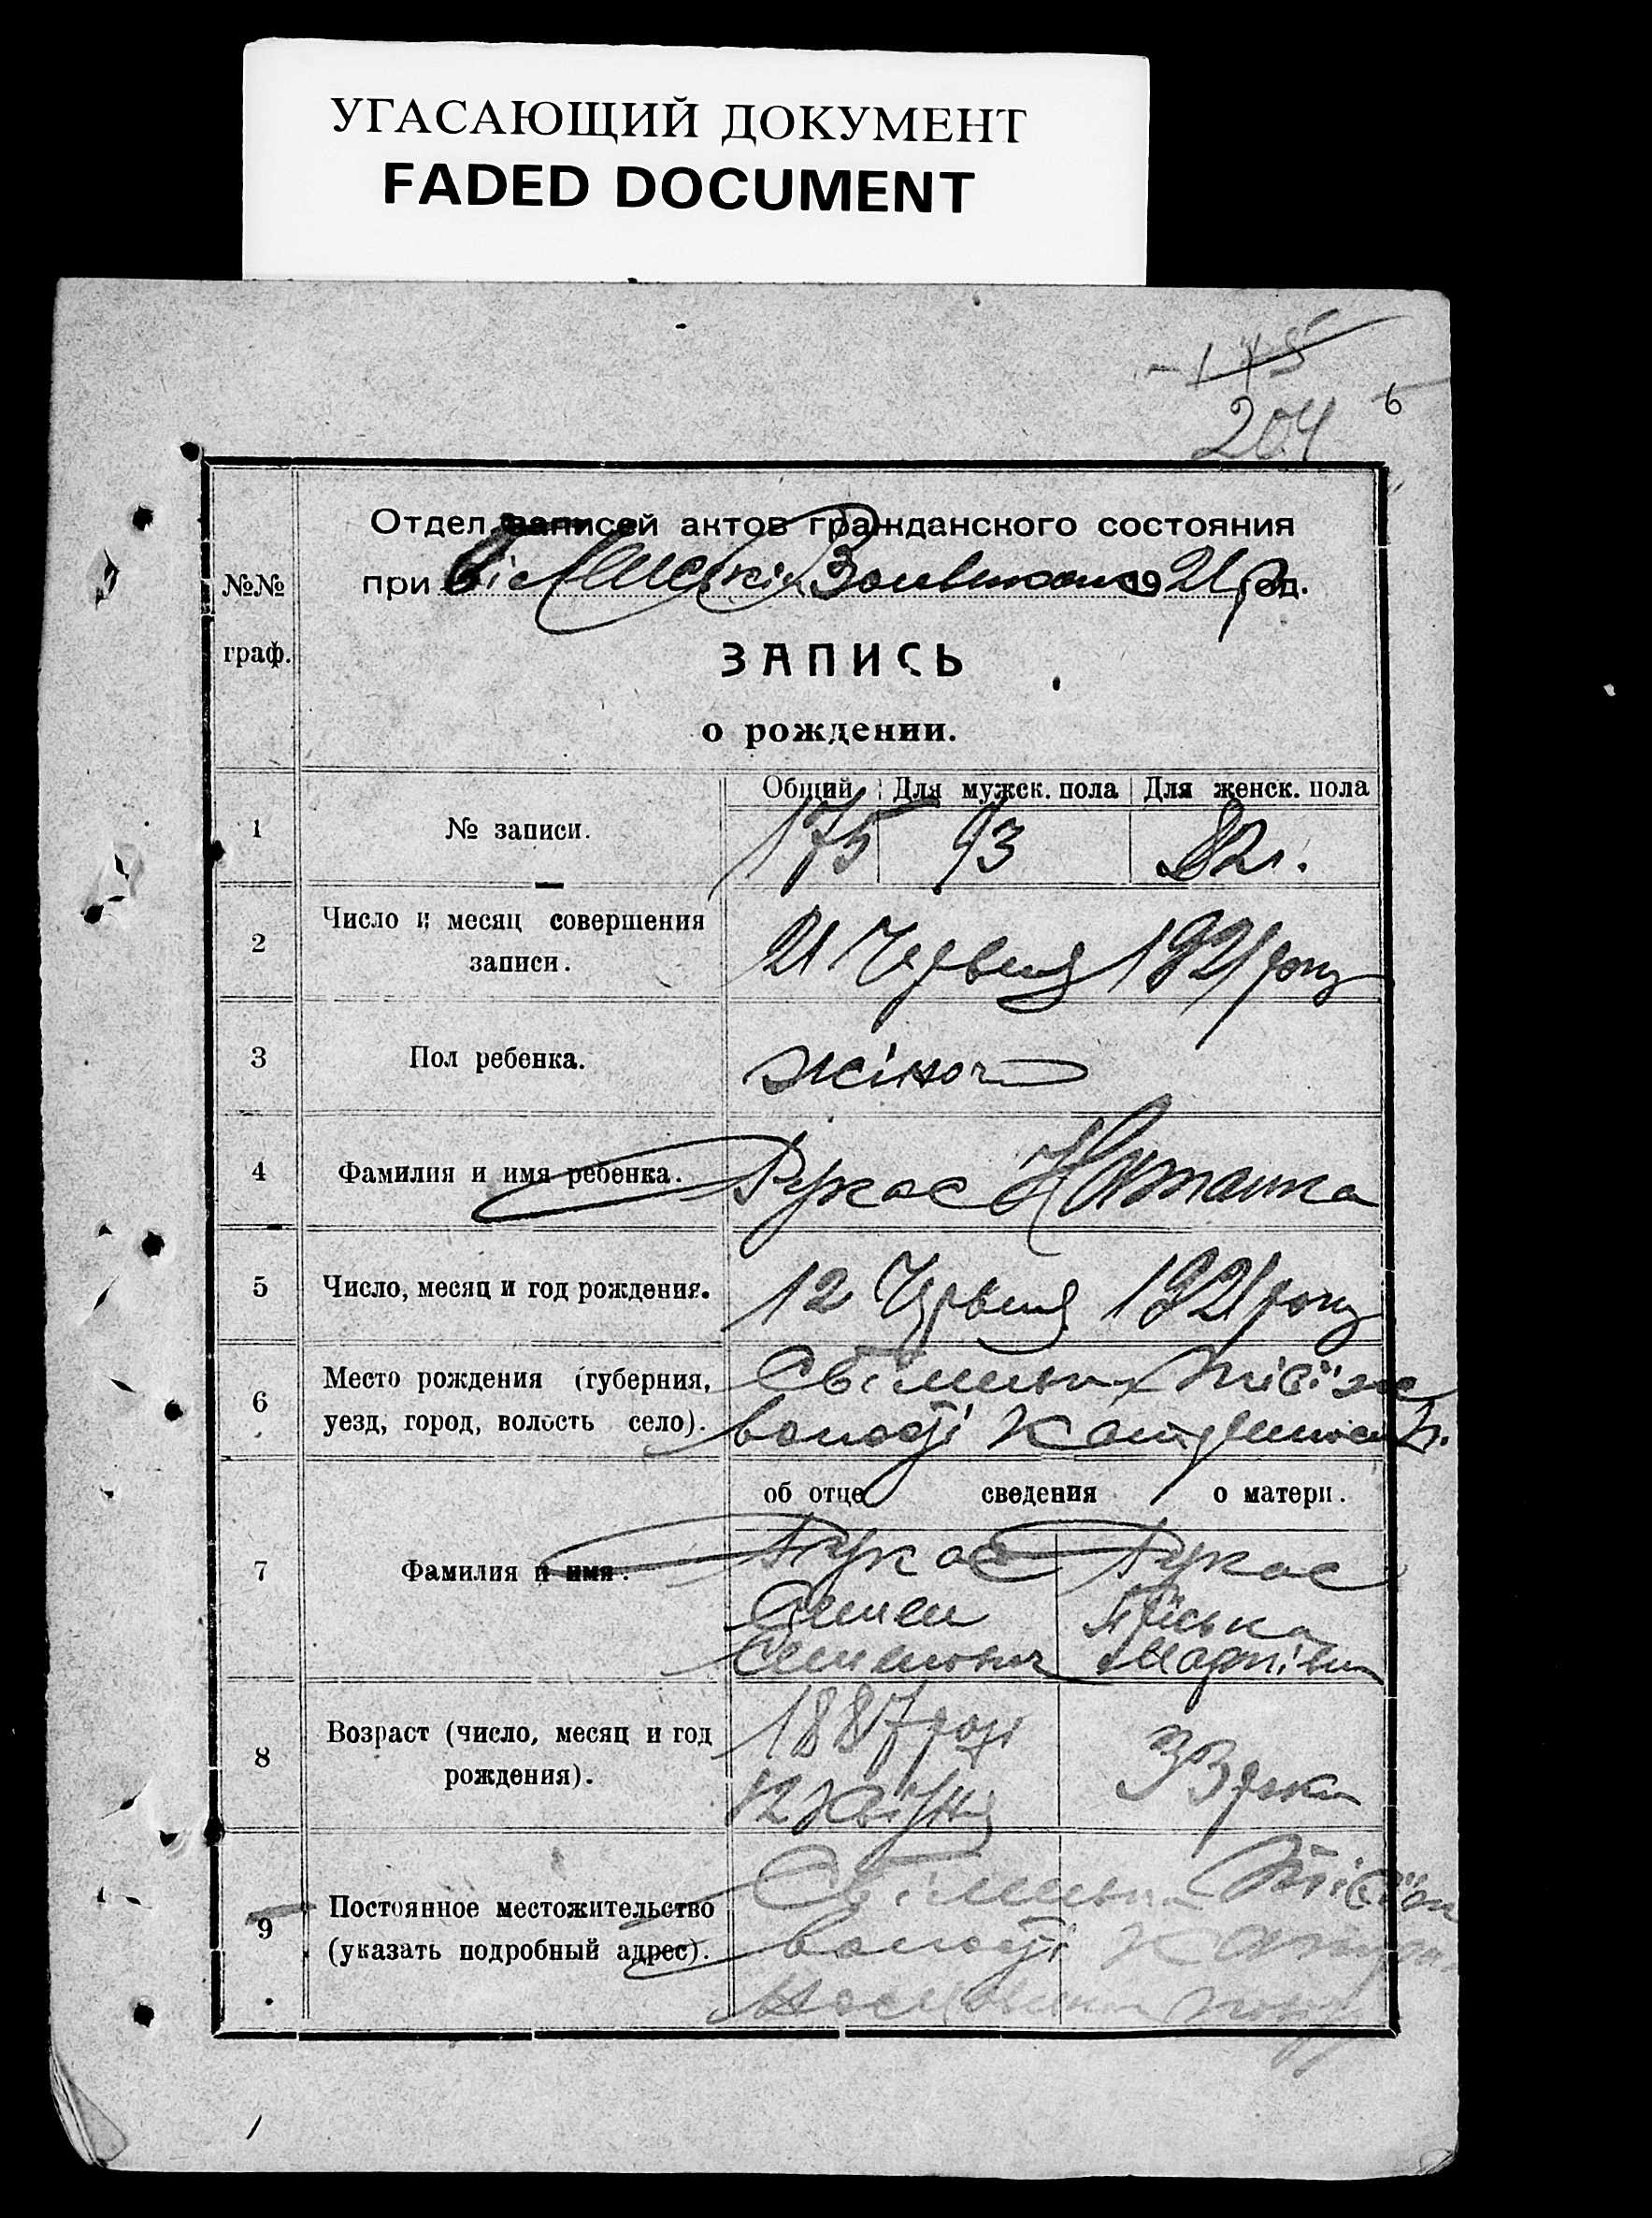 УГАСАЮЩИЙ ДОКУМЕНТ
FADED DOCUMENT
175
204
6
Отдел записей актов гражданского состояния
при 1921 р год.
№№
граф.
ЗАПИСЬ
о рождении.
Общий Для мужск. пола Для женск. пола
1 № записи. 175 93 82
2 Число и месяц совершения
записи.
21 Червня 1921 року
3 Пол ребенка. жіноч
4 Фамилия и имя ребенка. Рукас Наталка
5 Число, месяц и год рождения. 12 Червня 1921 року
6 Место рождения (губерния,
уезд, город, волость село).
волості
об отце сведения о матери.
7 Фамилия и имя. Рукас Рукас
Семен
Семенович
8 Возраст (число, месяц и год
рождения).
1887 рок
12 33 роки
9 Постоянное местожительство
(указать подробный адрес).
волості